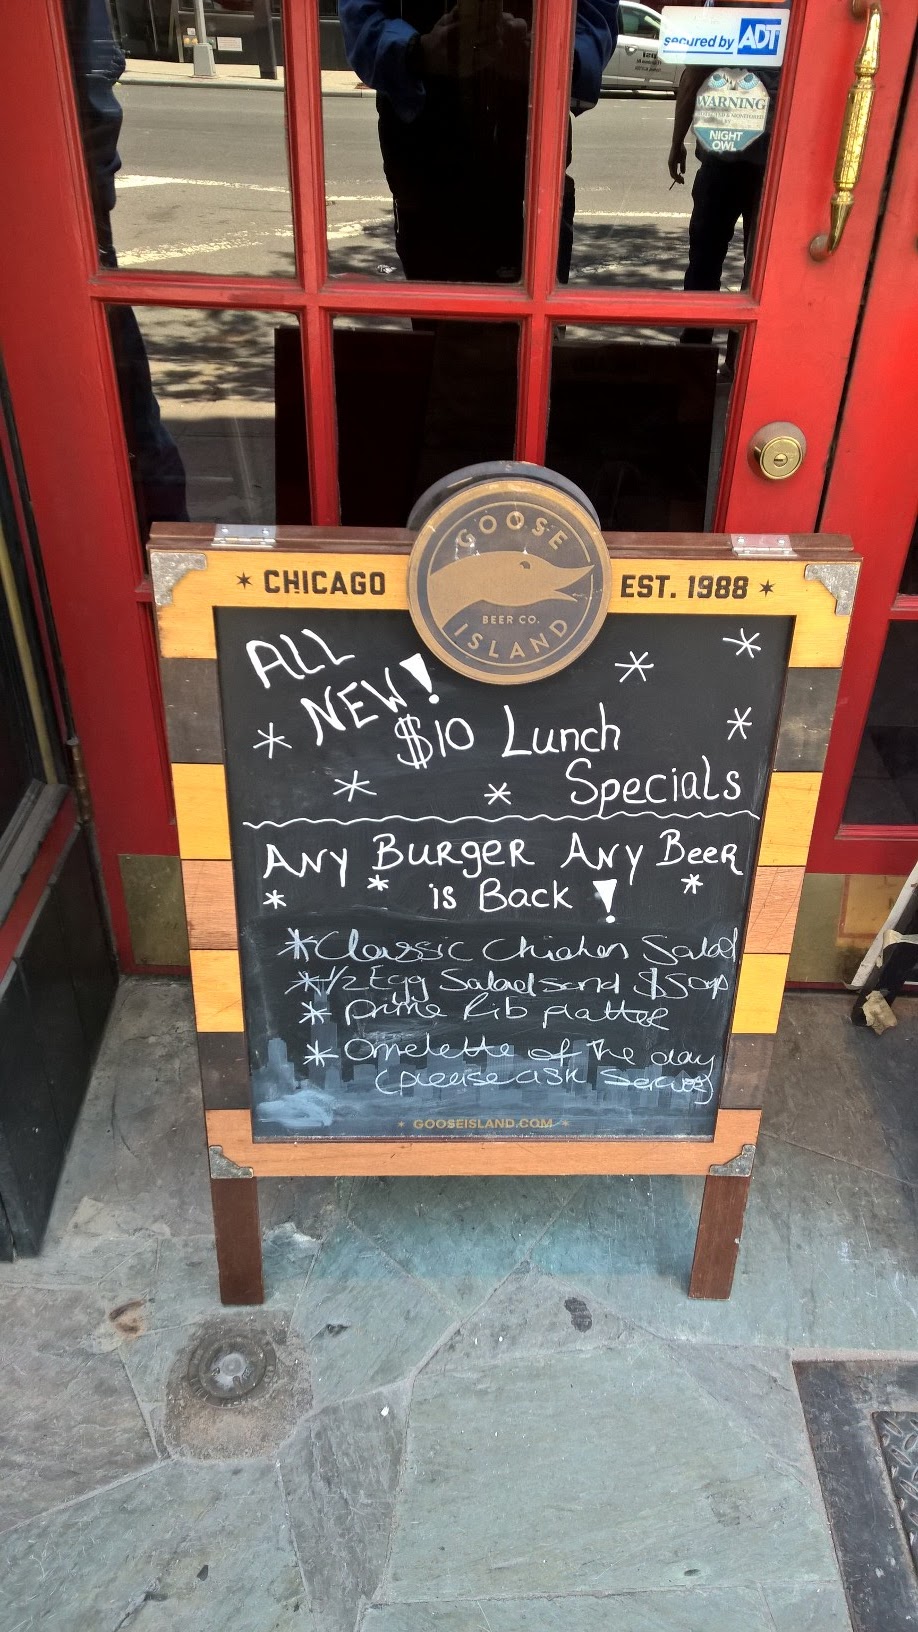 secured by ADT
WARNING
NIGHT
OWL
GOOSE
BEER CO.
ISLAND
CHICAGO
EST. 1988
ALL
NEW!
$10 Lunch
Specials
Any Burger Any Beer
is Back!
*Classic Chicken Salad
*1/2 Egg Salad sand
* Prime Rib platter
* Omelette of the day
(please ask
GOOSEISLAND.COM